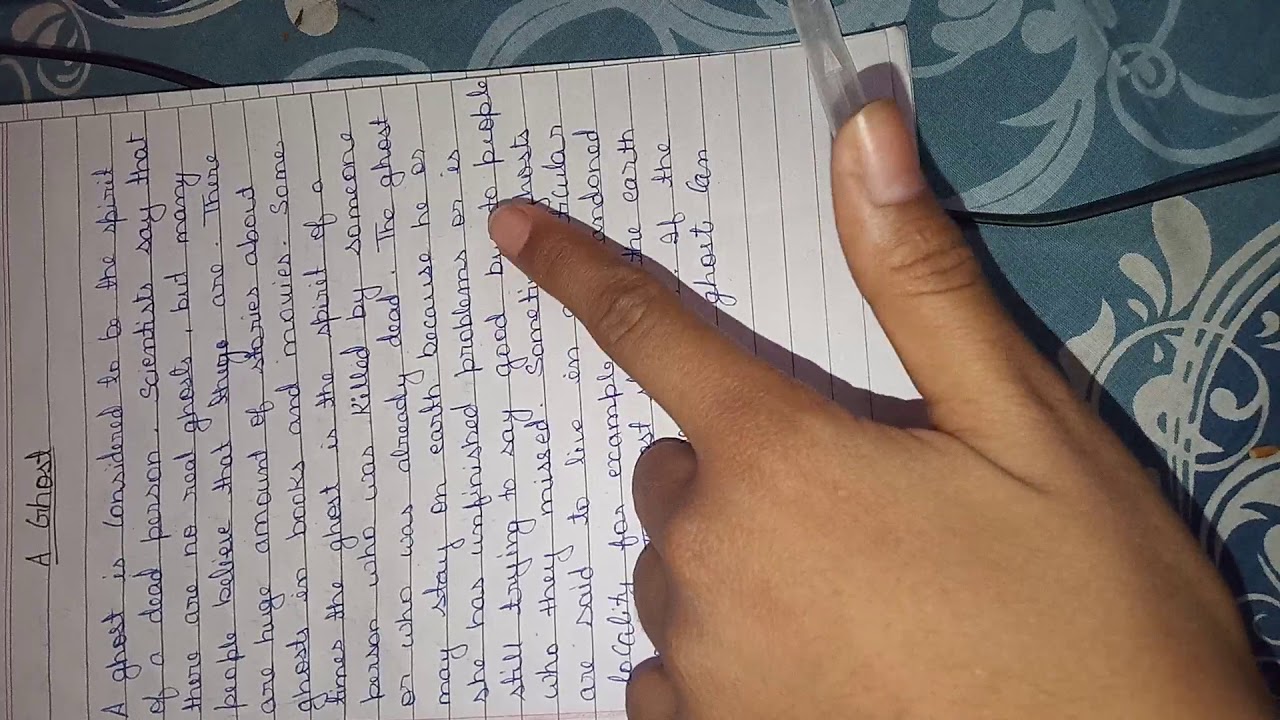 A Ghost
A ghost is considered to be the spirit
of a dead person. Scientists say that
there are no real ghosts, but many
people believe that there are. There
are huge amound of stories about
ghosts in books and movies. Some
times the ghost is the spirit of a
person who was killed by someone
or who was already dead. The ghost
may stay on earth because he or
she has unfinished problems or is
still trying to say good to people
who they missed. ghosts
are said to live in
locality for example andoned
the earth
If the
ghost can